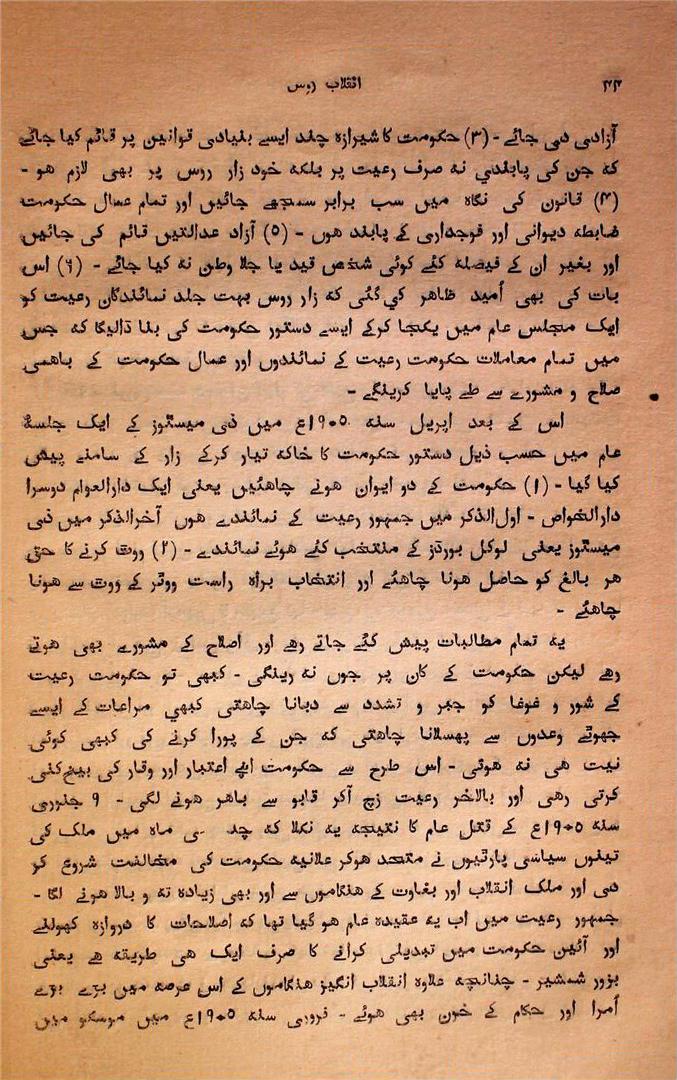 ۴۴
انقلاب روس
آزادی دی جائے - (۳) حکومت کا شیرازہ چند ایسے بنیادی قوانین پر قائم کیا جائے
کہ جن کی پابندی نہ صرف رعیت پر بلکہ خود زار روس پر بھی لازم ہو -
(۴) قانون کی نگاہ میں سب برابر سمجھے جائیں اور تمام عمال حکومت
ضابطہ دیوانی اور فوجداری کے پابند ہوں - (۵) آزاد عدالتیں قائم کی جائیں
اور بغیر ان کے فیصلہ کئے کوئی شخص قید یا جلا وطن نہ کیا جائے - (۶) اس
بات کی بھی اُمید ظاہر کی گئی کہ زار روس بہت جلد نمائندگان رعیت کو
ایک مجلس عام میں یکجا کرکے ایسے دستور حکومت کی بنا ڈالیگا کہ جس
میں تمام معاملات حکومت رعیت کے نمائندوں اور عمال حکومت کے باہمی
صلاح و مشورے سے طے پایا کرینگے -
اس کے بعد اپریل سنہ ۱۹۰۵ع میں ذی میستوز کے ایک جلسۂ
عام میں حسب ذیل دستور حکومت کا خاکہ تیار کرکے زار کے سامنے پیش
کیا گیا - (۱) حکومت کے دو ایوان ہونے چاہئیں یعنی ایک دارالعوام دوسرا
دارالخواص - اول‌الذکر میں جمہور رعیت کے نمائندے ہوں آخرالذکر میں ذی
میستوز یعنی لوکل بورڈز کے منتخب کئے ہوئے نمائندے - (۲) ووٹ کرنے کا حق
ہر بالغ کو حاصل ہونا چاہئے اور انتخاب براہ راست ووٹر کے ووٹ سے ہونا
چاہئے -
یہ تمام مطالبات پیش کئے جاتے رہے اور اصلاح کے مشورے بھی ہوتے
رہے لیکن حکومت کے کان پر جوں نہ رینگی - کبھی تو حکومت رعیت
کے شور و غوغا کو جبر و تشدد سے دبانا چاہتی کبھی مراعات کے ایسے
جھوٹے وعدوں سے پھسلانا چاہتی کہ جن کے پورا کرنے کی کبھی کوئی
نیت ہی نہ ہوتی - اس طرح سے حکومت اپنے اعتبار اور وقار کی بیخ‌کنی
کرتی رہی اور بالاخر رعیت زچ آکر قابو سے باہر ہونے لگی - ۹ جنوری
سنہ ۱۹۰۵ع کے قتل عام کا نتیجہ یہ نکلا کہ چند ہی ماہ میں ملک کی
تینوں سیاسی پارٹیوں نے متحد ہوکر علانیہ حکومت کی مخالفت شروع کو
دی اور ملک انقلاب اور بغاوت کے ہنگاموں سے اور بھی زیادہ تہ و بالا ہونے لگا -
جمہور رعیت میں اب یہ عقیدہ عام ہو گیا تھا کہ اصلاحات کا دروازہ کھولنے
اور آئین حکومت میں تبدیلی کرانے کا صرف ایک ہی طریقہ ہے یعنی
بزور شمشیر - چنانچہ علاوہ انقلاب انگیز ہنگاموں کے اس عرصہ میں بڑے بڑے
اُمرا اور حکام کے خون بھی ہوئے - فروری سنہ ۱۹۰۵ع میں موسکو میں